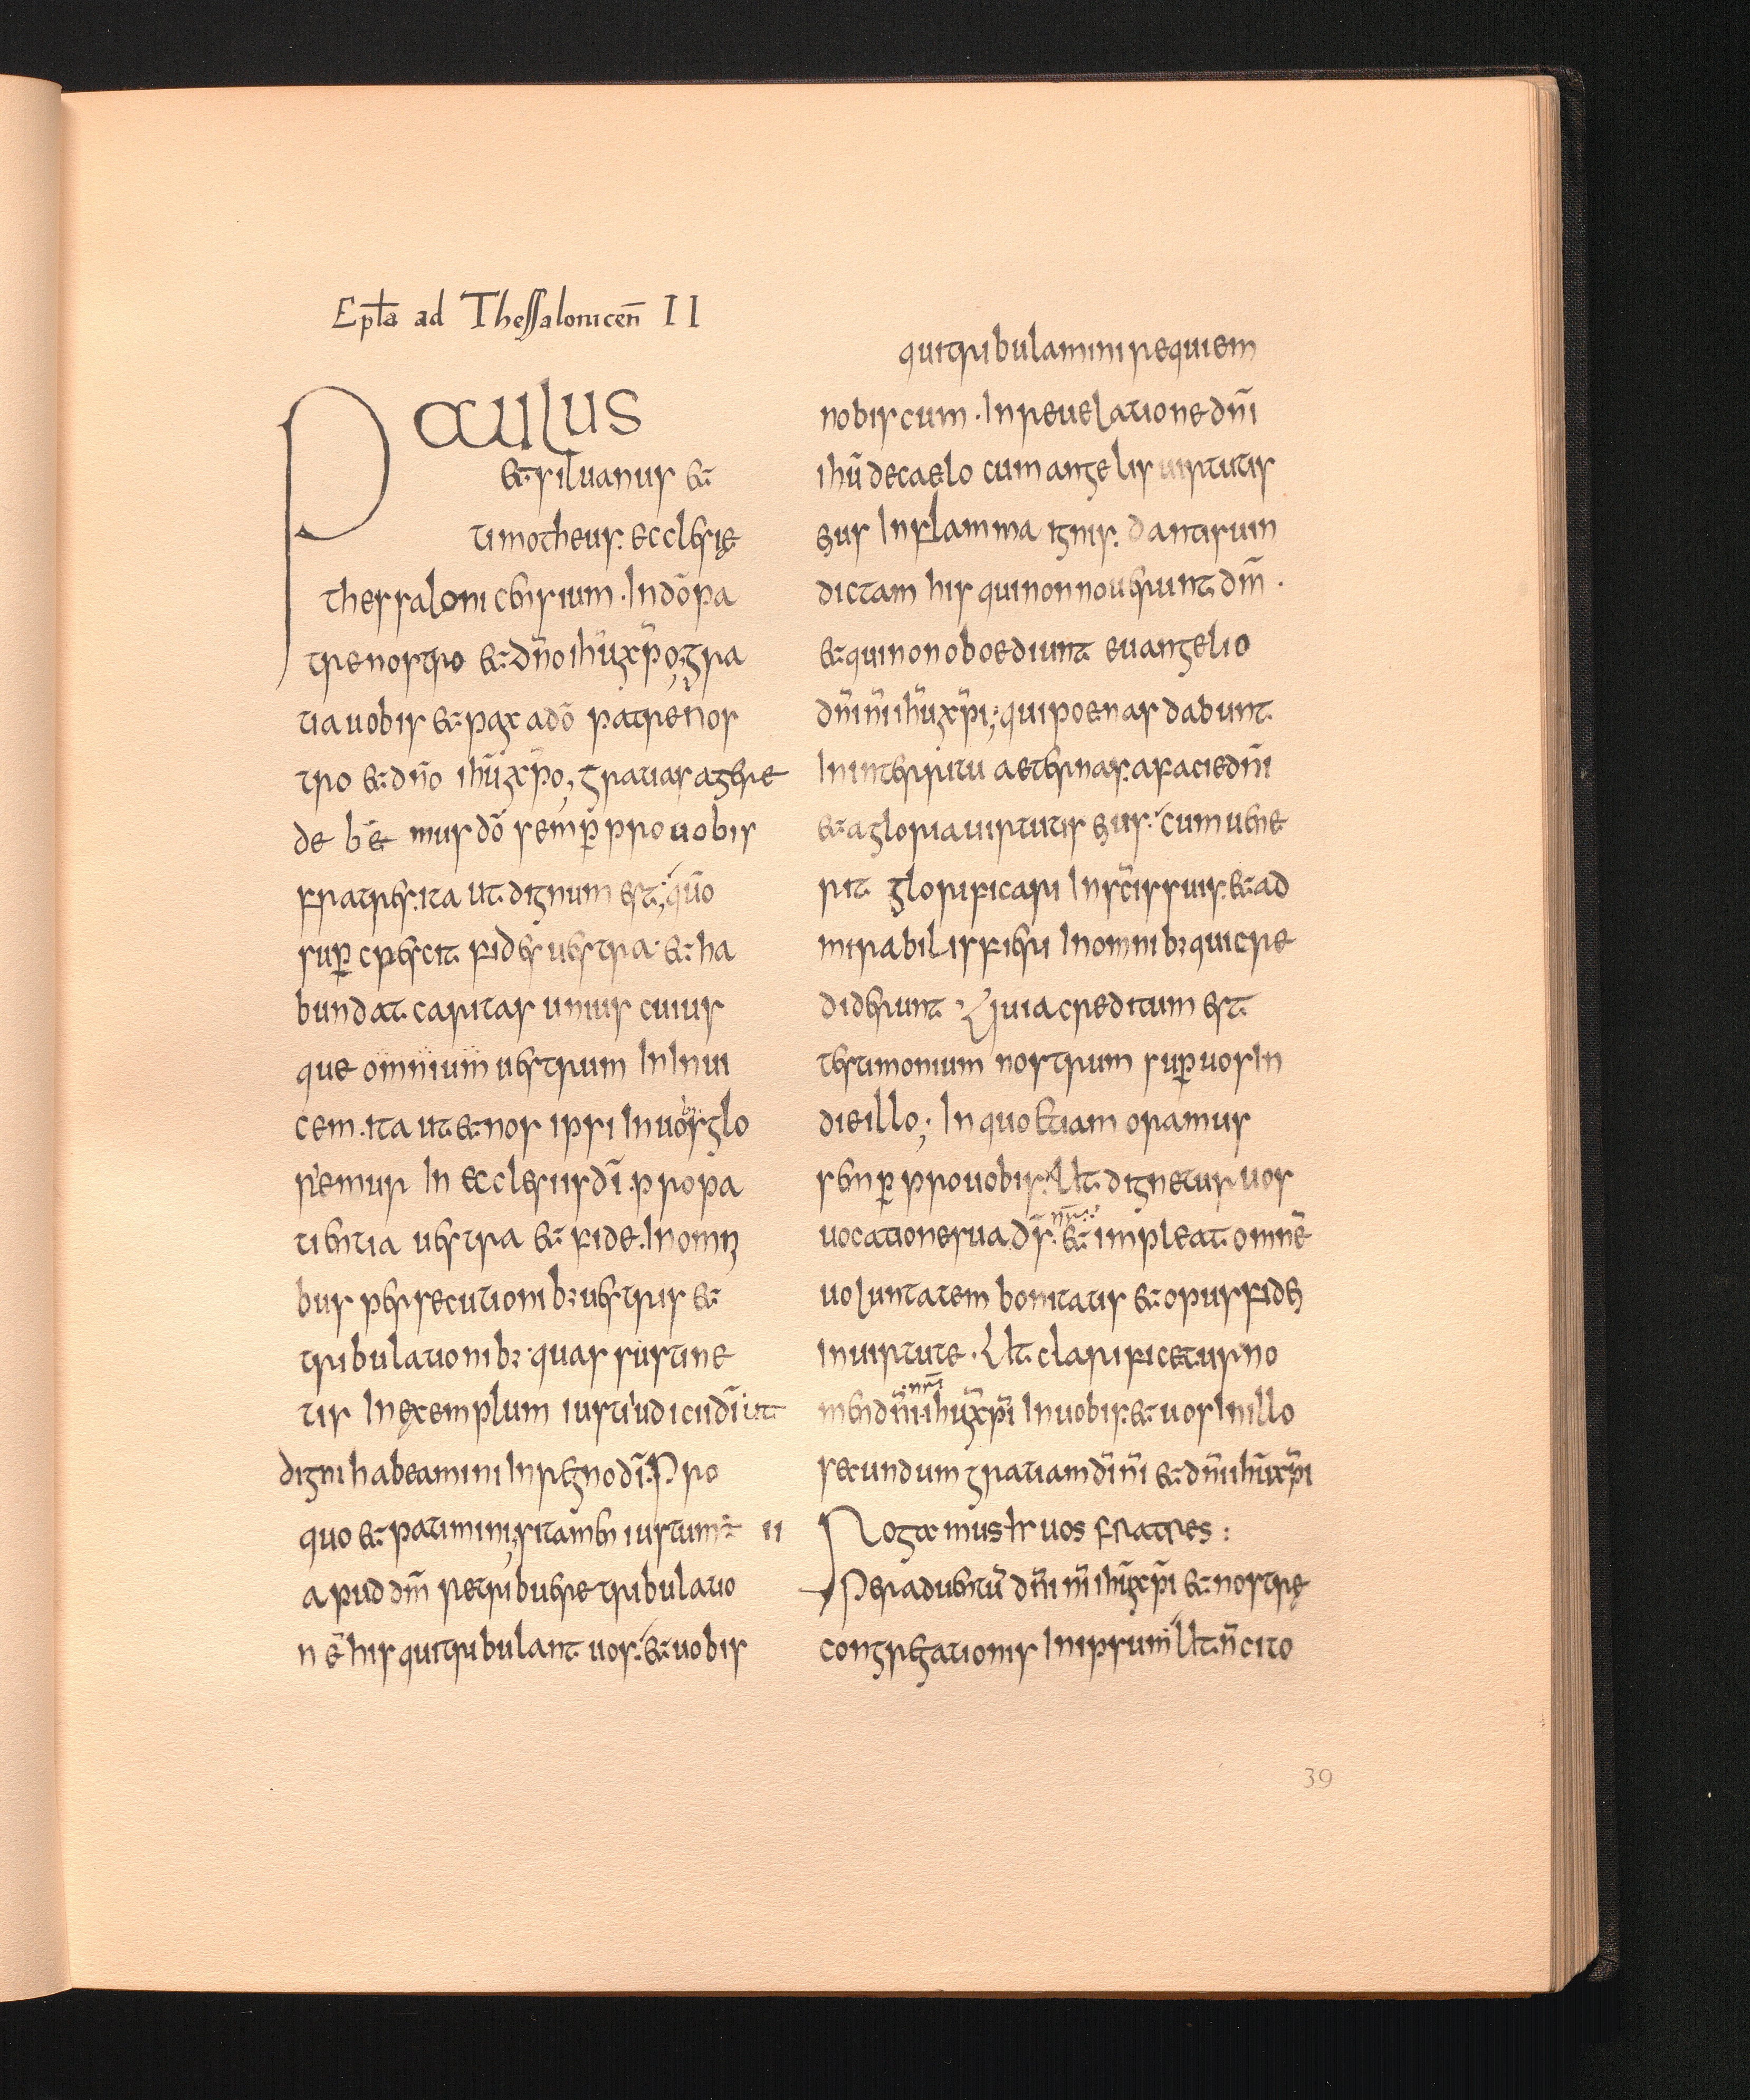 Epl̄a ad Thessalonicen̄ II
Paulus
& siluanus &
timotheus. ecclesię
thessalonicensium. In dō pa
tre nostro & dn̄o ihū xp̄o; gra
tia uobis & pax a dō patre nos
tro & dn̄o ihū xp̄o; gratias agere
debe& mus dō semp̄ pro uobis
fratres. ita ut dignum est; qūo
sup̄crescit fides uestra & ha
bundat caritas unius cuius
que omnium uestrum In Inui
cem. ita ut & nos ipsi In uobis glo
riemur In ecclesiis dī. pro pa
tientia uestra & fide. In omni
bus persecutionib: uestris &
tribulationib: quas sustine
tis In exemplum iusti iudicii dī ut
digni habeamini In regno dī. Pro
quo & patimini; si tamen iustum ē
apud dm̄ retribuere tribulatio
nē his qui tribulant uos. & uobis
qui tribulamini requiem
nobiscum. In reuelatione dn̄i
ihū de caelo cum angelis uirtutis
eius In flamma ignis. dantis uin
dictam his qui non nouerunt dm̄.
& qui non oboediunt euangelio
dn̄i n̄i ihū xp̄i; qui poenas dabunt
In interitu aeternas. a facie dn̄i
& a gloria uirtutis eius. cum uene
rit glorificari In sc̄is suis. & ad
mirabilis fieri In omnib: qui cre
diderunt Quia creditum est
testimonium nostrum sup̄ uos In
die illo; In quo etiam oramus
semp̄ pro uobis. Ut dignetur uos
uocatione sua dr̄. nr̄ & impleat omnē
uoluntatem bonitatis & opus fidei
In uirtute. Ut clarificetur no
men dn̄i nr̄i ihū xp̄i In uobis. & uos In illo
secundum gratiam dī n̄i & dn̄i ihū xp̄i
II Rogamus hr uos fratres:
Per aduentū dn̄i n̄i ihū xp̄i & nostrę
congregationis In ipsum Ut n̄ cito
39